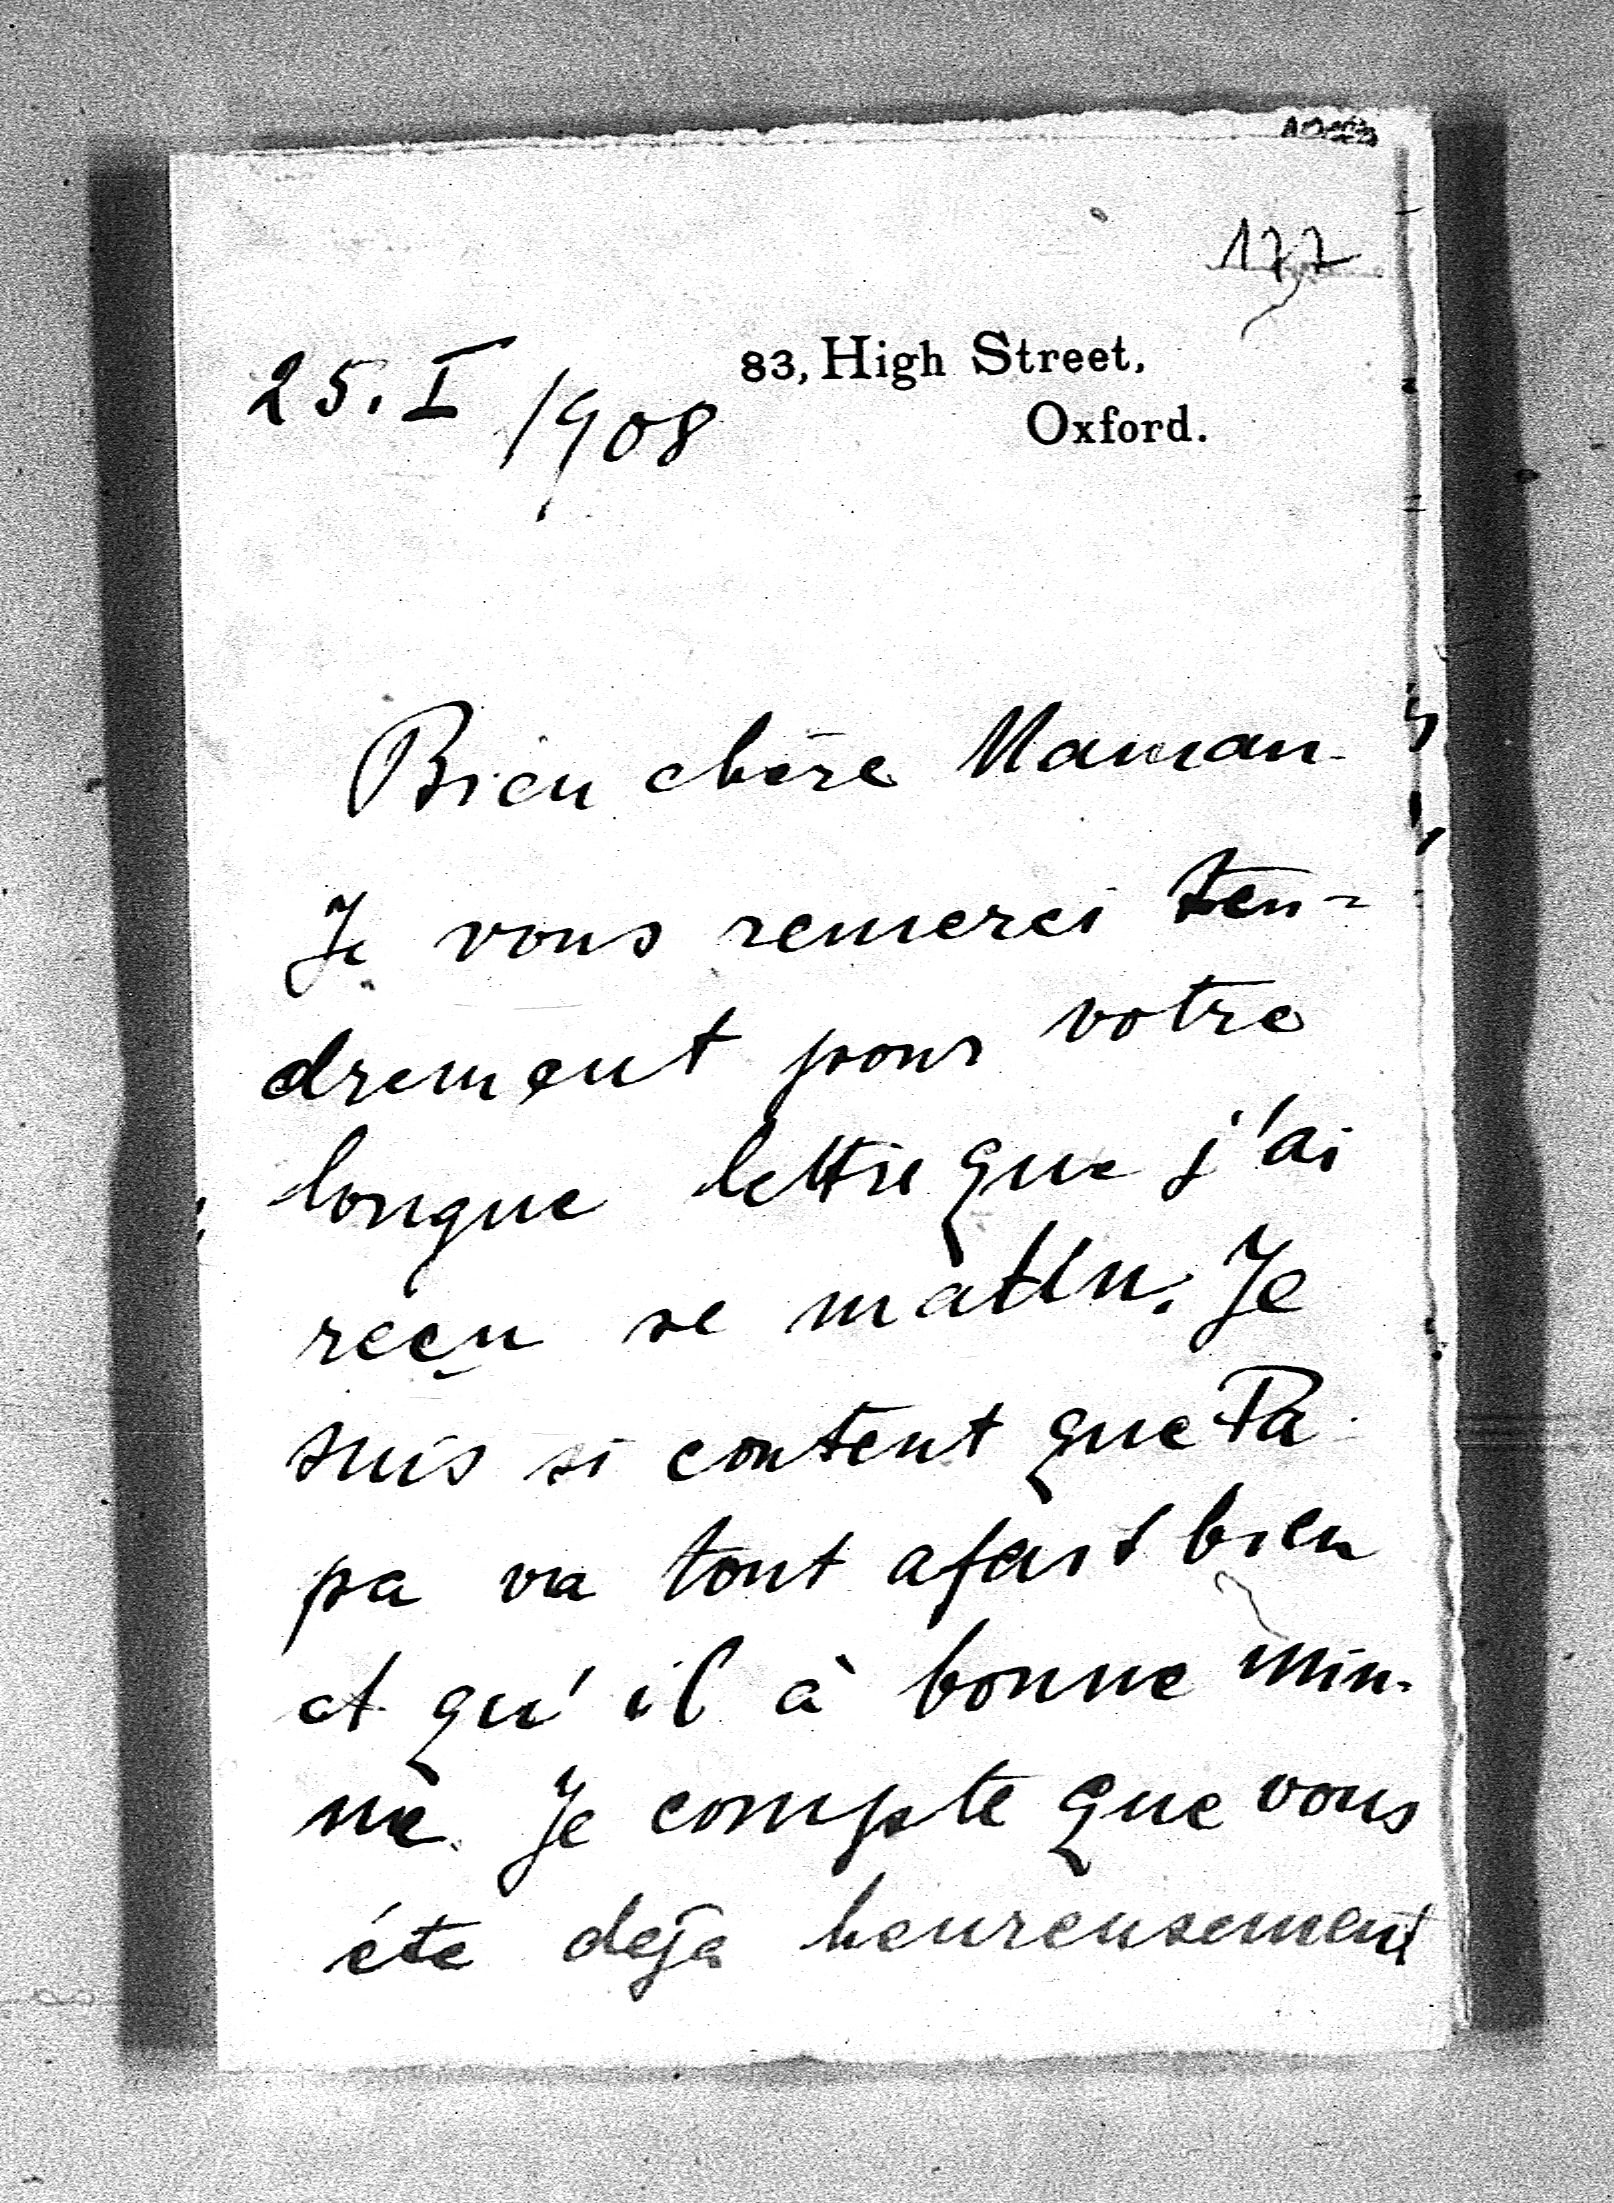 177
83, High Street,
25. I /1908
Oxford.
Bien chère Maman.
Je vous remerci ten-
drement pour votre
longue lettre que j'ai
reçu se matin. Je
suis si content que Pa
pa va tout afait bien
et qu'il à bonne min-
ne. Je compte que vous
éte deja heureusement